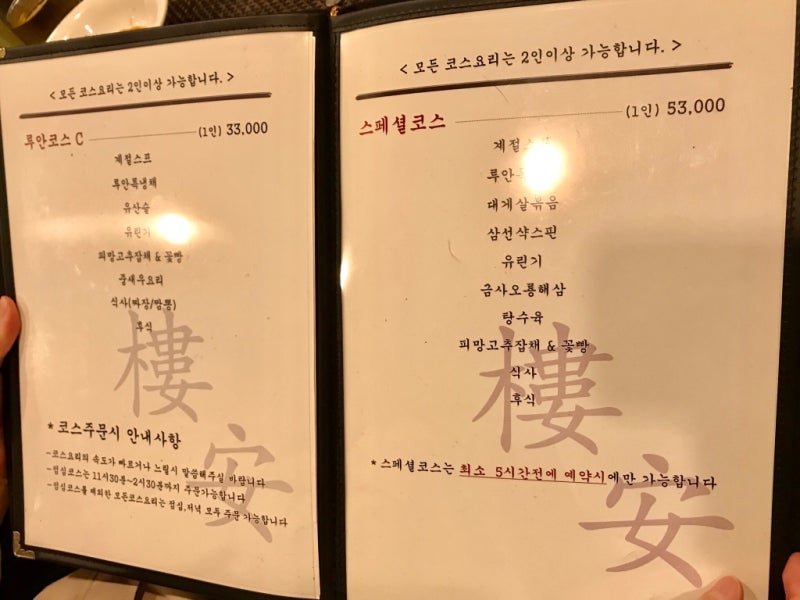 < 모든 코스요리는 2인이상 가능합니다. >
루안코스 C (1인) 33,000
계절스프
루안특냉채
유산슬
유린기
피망고추잡채 & 꽃빵
중새우요리
식사(짜장/짬뽕)
후식
樓
安
* 코스주문시 안내사항
-코스요리의 속도가 빠르거나 느릴시 말씀해주실 바랍니다
-점심코스는 11시30분~2시30분까지 주문가능합니다
-점심코스를 제외한 모든코스요리는 점심,저녁 모두 주문 가능합니다
< 모든 코스요리는 2인이상 가능합니다. >
스페셜코스 (1인) 53,000
계절
루안
대게살볶음
삼선샥스핀
유린기
금사오룡해삼
탕수육
피망고추잡채 & 꽃빵
식사
후식
樓
* 스페셜코스는 최소 5시간전에 예약시에만 가능합니다
安